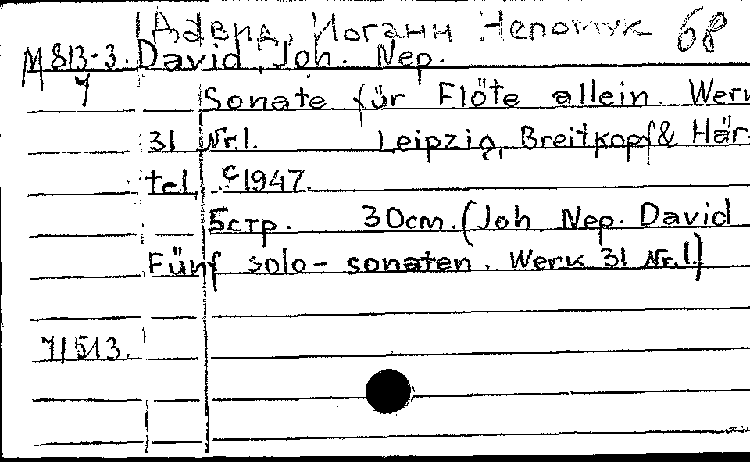 Давид, Иоганн Непомук 68
М 813-3. David, Joh. Nep.
7
Sonate für Flöte allein. Werk
31 Nr.1. Leipzig, Breitkopf & Här-
tel, c1947.
5стр. 30cm. (Joh Nep. David
Fünf solo-sonaten. Werk 31 Nr.1)
71513.